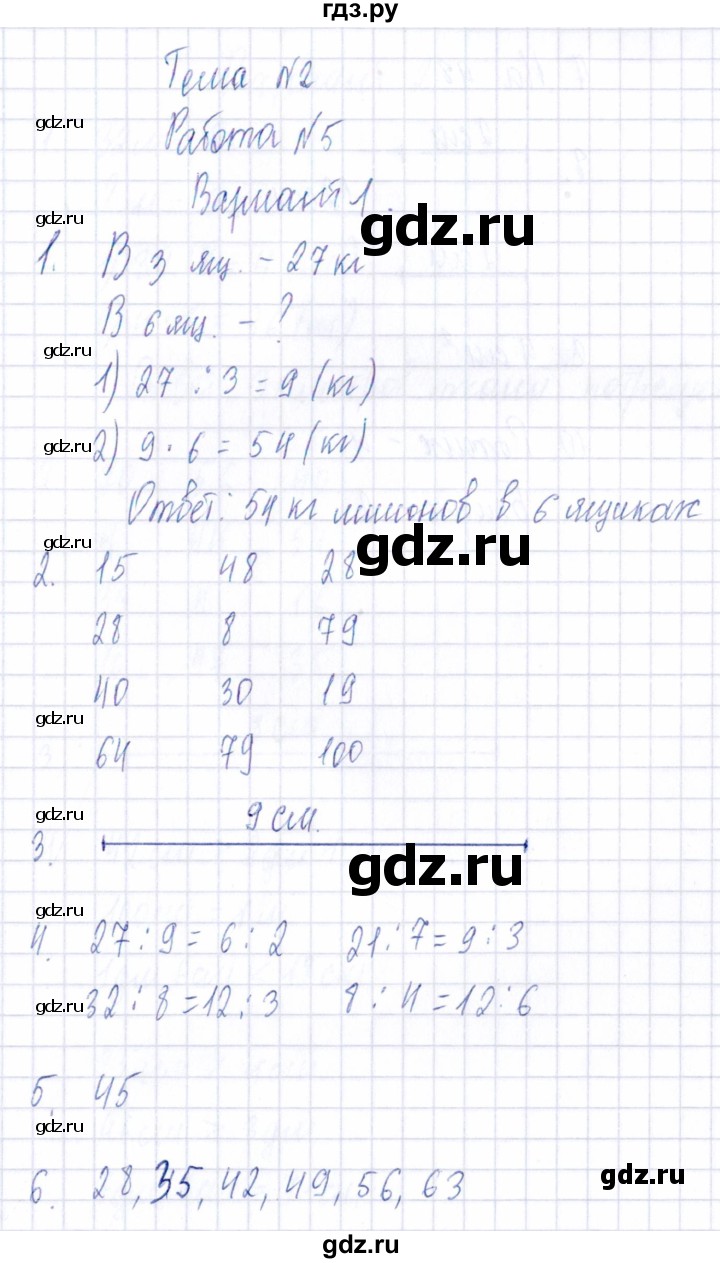 гдз.ру
Тема №2
gdz.ru
Работа №5
Вариант 1.
gdz.ru
gdz.ru
1. В 3 ящ. - 27 кг
В 6 ящ. - ?
gdz.ru
1) 27 : 3 = 9 (кг)
gdz.ru
2) 9 · 6 = 54 (кг)
Ответ: 54 кг лимонов в 6 ящиках
gdz.ru
gdz.ru
2. 15 48 28
28 8 79
40 30 19
gdz.ru
64 79 100
gdz.ru
9 см.
3.
gdz.ru
gdz.ru
4. 27 : 9 = 6 : 2 21 : 7 = 9 : 3
gdz.ru
32 : 8 = 12 : 3 8 : 4 = 12 : 6
5. 45
gdz.ru
gdz.ru
6. 28, 35, 42, 49, 56, 63
gdz.ru